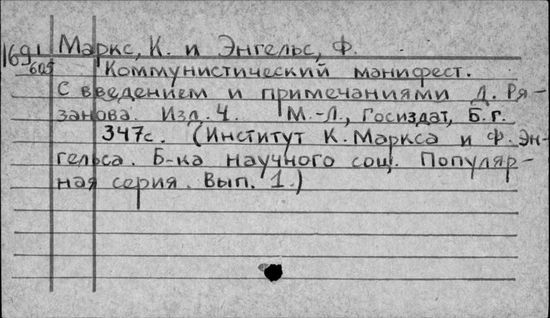 1691
605
Маркс, К. и Энгельс, Ф.
Коммунистический манифест.
С введением и примечаниями Д. Ря-
занова. Изд. 4. М.-Л., Госиздат, Б.г.
347с. (Институт К. Маркса и Ф. Эн-
гельса. Б-ка научного соц. Популяр-
ная серия. Вып. 1.)